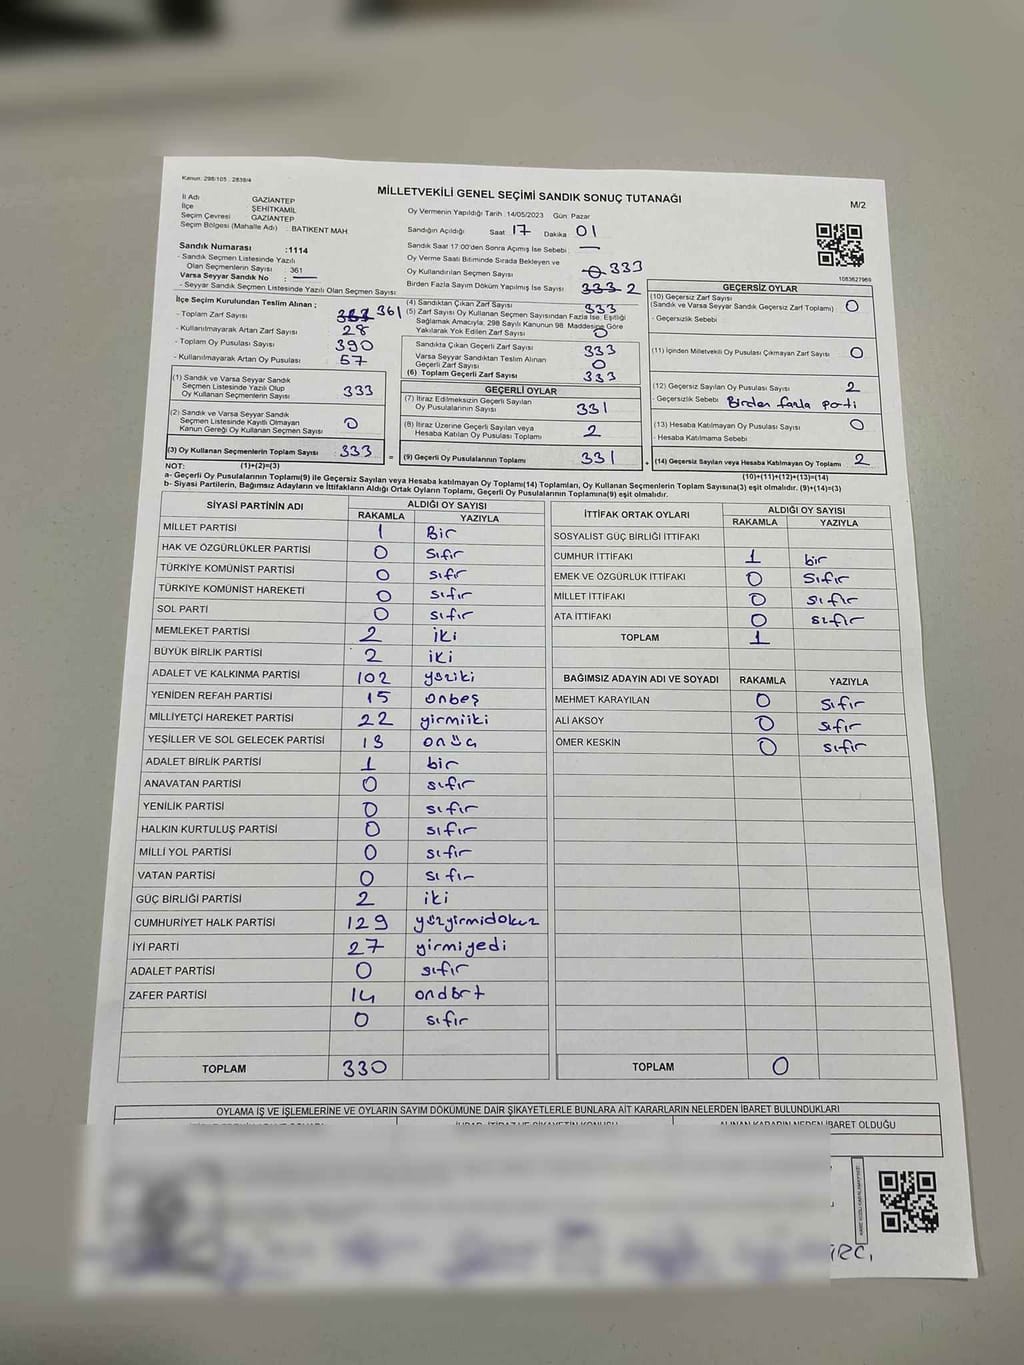 Kanun: 298/105 - 2839/4
MİLLETVEKİLİ GENEL SEÇİMİ SANDIK SONUÇ TUTANAĞI
M/2
İl Adı GAZİANTEP
İlçe ŞEHİTKAMİL
Seçim Çevresi GAZİANTEP
Seçim Bölgesi (Mahalle Adı) : BATIKENT MAH
Sandık Numarası :1114
- Sandık Seçmen Listesinde Yazılı
Olan Seçmenlerin Sayısı : 361
Varsa Seyyar Sandık No : —
- Seyyar Sandık Seçmen Listesinde Yazılı Olan Seçmen Sayısı
Oy Vermenin Yapıldığı Tarih : 14/05/2023 Gün: Pazar
Sandığın Açıldığı Saat 17 Dakika 01
Sandık Saat 17:00'den Sonra Açımış İse Sebebi : —
Oy Verme Saati Bitiminde Sırada Bekleyen ve
Oy Kullandırılan Seçmen Sayısı 0 333
Birden Fazla Sayım Döküm Yapılmış İse Sayısı 333 2
1083627969
İlçe Seçim Kurulundan Teslim Alınan ;
- Toplam Zarf Sayısı 361
- Kullanılmayarak Artan Zarf Sayısı 28
- Toplam Oy Pusulası Sayısı 390
- Kullanılmayarak Artan Oy Pusulası 57
(1) Sandık ve Varsa Seyyar Sandık
Seçmen Listesinde Yazılı Olup
Oy Kullanan Seçmenlerin Sayısı 333
(2) Sandık ve Varsa Seyyar Sandık
Seçmen Listesinde Kayıtlı Olmayan
Kanun Gereği Oy Kullanan Seçmen Sayısı 0
(3) Oy Kullanan Seçmenlerin Toplam Sayısı 333
(4) Sandıktan Çıkan Zarf Sayısı 333
(5) Zarf Sayısı Oy Kullanan Seçmen Sayısından Fazla İse, Eşitliği
Sağlamak Amacıyla, 298 Sayılı Kanunun 98. Maddesine Göre
Yakılarak Yok Edilen Zarf Sayısı 0
Sandıkta Çıkan Geçerli Zarf Sayısı 333
Varsa Seyyar Sandıktan Teslim Alınan
Geçerli Zarf Sayısı 0
(6) Toplam Geçerli Zarf Sayısı 333
GEÇERLİ OYLAR
(7) İtiraz Edilmeksizin Geçerli Sayılan
Oy Pusulalarının Sayısı 331
(8) İtiraz Üzerine Geçerli Sayılan veya
Hesaba Katılan Oy Pusulası Toplamı 2
= (9) Geçerli Oy Pusulalarının Toplamı 331
GEÇERSİZ OYLAR
(10) Geçersiz Zarf Sayısı
(Sandık ve Varsa Seyyar Sandık Geçersiz Zarf Toplamı) 0
- Geçersizlik Sebebi
(11) İçinden Milletvekili Oy Pusulası Çıkmayan Zarf Sayısı 0
(12) Geçersiz Sayılan Oy Pusulası Sayısı 2
- Geçersizlik Sebebi Birden fazla parti
(13) Hesaba Katılmayan Oy Pusulası Sayısı 0
- Hesaba Katılmama Sebebi
+ (14) Geçersiz Sayılan veya Hesaba Katılmayan Oy Toplamı 2
NOT: (1)+(2)=(3)
(10)+(11)+(12)+(13)=(14)
a- Geçerli Oy Pusulaları Toplamı(9) ile Geçersiz Sayılan veya Hesaba katılmayan Oy Toplamı(14) Toplamları, Oy Kullanan Seçmenlerin Toplam Sayısına(3) eşit olmalıdır. (9)+(14)=(3)
b- Siyasi Partilerin, Bağımsız Adayların ve İttifakların Aldığı Ortak Oyların Toplamı, Geçerli Oy Pusulalarının Toplamına(9) eşit olmalıdır.
SİYASİ PARTİNİN ADI ALDIĞI OY SAYISI
RAKAMLA YAZIYLA
MİLLET PARTİSİ 1 Bir
HAK VE ÖZGÜRLÜKLER PARTİSİ 0 Sıfır
TÜRKİYE KOMÜNİST PARTİSİ 0 sıfır
TÜRKİYE KOMÜNİST HAREKETİ 0 sıfır
SOL PARTİ 0 sıfır
MEMLEKET PARTİSİ 2 iki
BÜYÜK BİRLİK PARTİSİ 2 iki
ADALET VE KALKINMA PARTİSİ 102 yüziki
YENİDEN REFAH PARTİSİ 15 onbeş
MİLLİYETÇİ HAREKET PARTİSİ 22 yirmiiki
YEŞİLLER VE SOL GELECEK PARTİSİ 13 onüç
ADALET BİRLİK PARTİSİ 1 bir
ANAVATAN PARTİSİ 0 sıfır
YENİLİK PARTİSİ 0 sıfır
HALKIN KURTULUŞ PARTİSİ 0 sıfır
MİLLİ YOL PARTİSİ 0 sıfır
VATAN PARTİSİ 0 sıfır
GÜÇ BİRLİĞİ PARTİSİ 2 iki
CUMHURİYET HALK PARTİSİ 129 yüzyirmidokuz
İYİ PARTİ 27 yirmiyedi
ADALET PARTİSİ 0 sıfır
ZAFER PARTİSİ 14 ondört
0 sıfır
TOPLAM 330
İTTİFAK ORTAK OYLARI ALDIĞI OY SAYISI
RAKAMLA YAZIYLA
SOSYALİST GÜÇ BİRLİĞİ İTTİFAKI
CUMHUR İTTİFAKI 1 bir
EMEK VE ÖZGÜRLÜK İTTİFAKI 0 Sıfır
MİLLET İTTİFAKI 0 sıfır
ATA İTTİFAKI 0 sıfır
TOPLAM 1
BAĞIMSIZ ADAYIN ADI VE SOYADI RAKAMLA YAZIYLA
MEHMET KARAYILAN 0 sıfır
ALİ AKSOY 0 sıfır
ÖMER KESKİN 0 sıfır
TOPLAM 0
OYLAMA İŞ VE İŞLEMLERİNE VE OYLARIN SAYIM DÖKÜMÜNE DAİR ŞİKAYETLERLE BUNLARA AİT KARARLARIN NELERDEN İBARET BULUNDUKLARI
ALINAN KARARIN NEDEN İBARET OLDUĞU